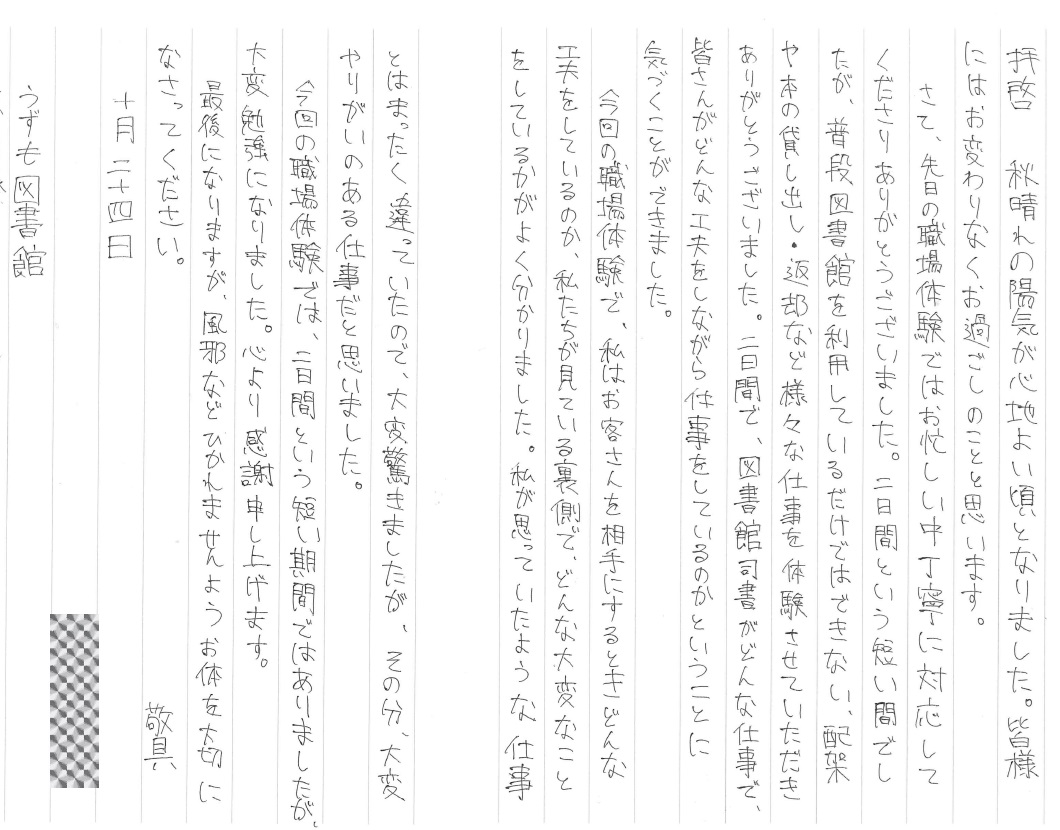 拝啓　秋晴れの陽気が心地よい頃となりました。皆様
にはお変わりなくお過ごしのことと思います。
さて、先日の職場体験ではお忙しい中丁寧に対応して
くださりありがとうございました。二日間という短い間でし
たが、普段図書館を利用しているだけではできない、配架
や本の貸し出し・返却など様々な仕事を体験させていただき
ありがとうございました。二日間で、図書館司書がどんな仕事で、
皆さんがどんな工夫をしながら仕事をしているのかということに
気づくことができました。
今回の職場体験で、私はお客さんを相手にするときどんな
工夫をしているのか、私たちが見ている裏側で、どんな大変なこと
をしているかがよく分かりました。私が思っていたような仕事
とはまったく違っていたので、大変驚きましたが、その分、大変
やりがいのある仕事だと思いました。
今回の職場体験では、二日間という短い期間ではありましたが、
大変勉強になりました。心より感謝申し上げます。
最後になりますが、風邪などひかれませんようお体を大切に
なさってください。
敬具
十月二十四日
うずも図書館